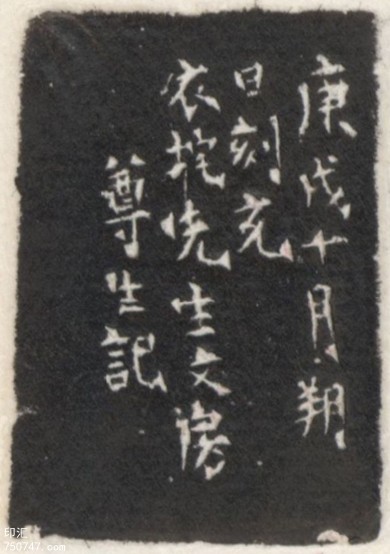 庚戌十月朔
日刻充
衣垞先生文房
尊生記
印汇
750747.com